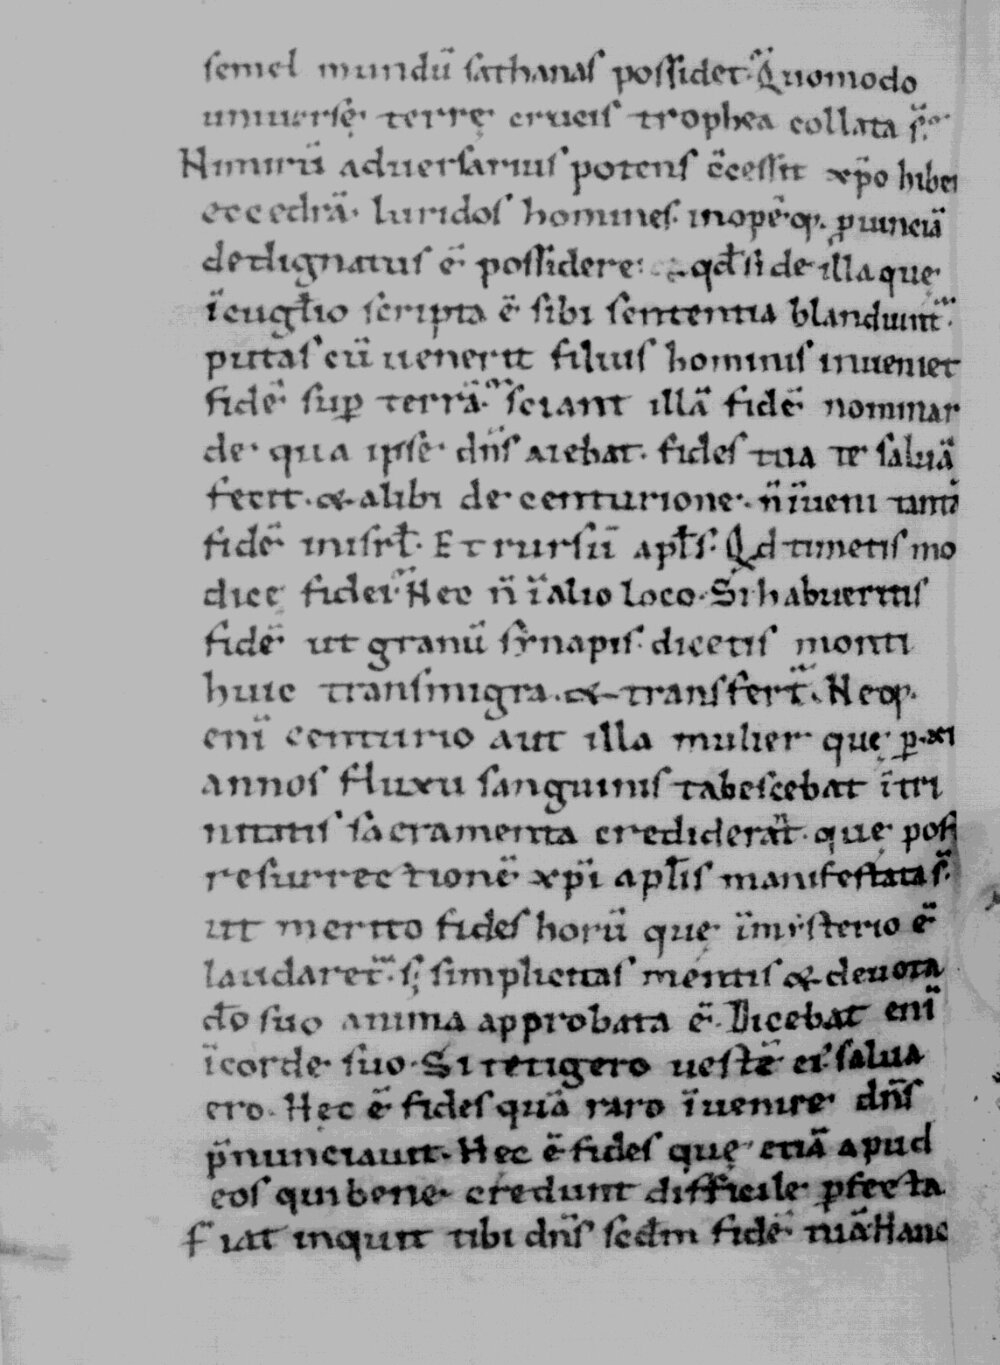 semel mundū sathanas possidet. Quomodo
uniuersę terrę crucis trophea collata s̄.
Nimirū aduersarius potens c̄cessit xp̄o hiberi
ec cedrā. luridos homines. inopē q; ꝓuinciā
dedignatus ē possidere: qđ si de illa quę
ī euglio scripta ē sibi sententia blandiunt̄.
putas cū uenerit filius hominis inueniet
fidē suꝑ terrā. sciant illā fidē nominar
de qua ipse dn̄s aiebat. fides tua te saluā
fecit. & alibi de centurione. n̄ īueni tantā
fidē in isrł. Et rursū apłs. Qd timetis mo
dicę fidei. Nec n̄ ī alio loco. Si habueritis
fidē ut granū synapis. dicetis monti
huic transmigra. & transfert̄. Neq;
enī centurio aut illa mulier quę ꝑ xii
annos fluxu sanguinis tabescebat ī tri
nitatis sacramenta crediderāt. quę post
resurrectionē xp̄i apłis manifestata s̄.
ut merito fides horū quę ī mysterio ē
laudaret̄. s; simplicitas mentis & deuota
do suo anima approbata ē. Dicebat enī
ī corde suo. Si tetigero uestē ei' salua
ero. Hęc ē fides quā raro īuenire dn̄s
p̄nunciauit. Hęc ē fides quę etiā apud
eos qui bene credunt difficile ꝑfecta
Fiat inquit tibi dn̄s sedm fidē tuā Hanc